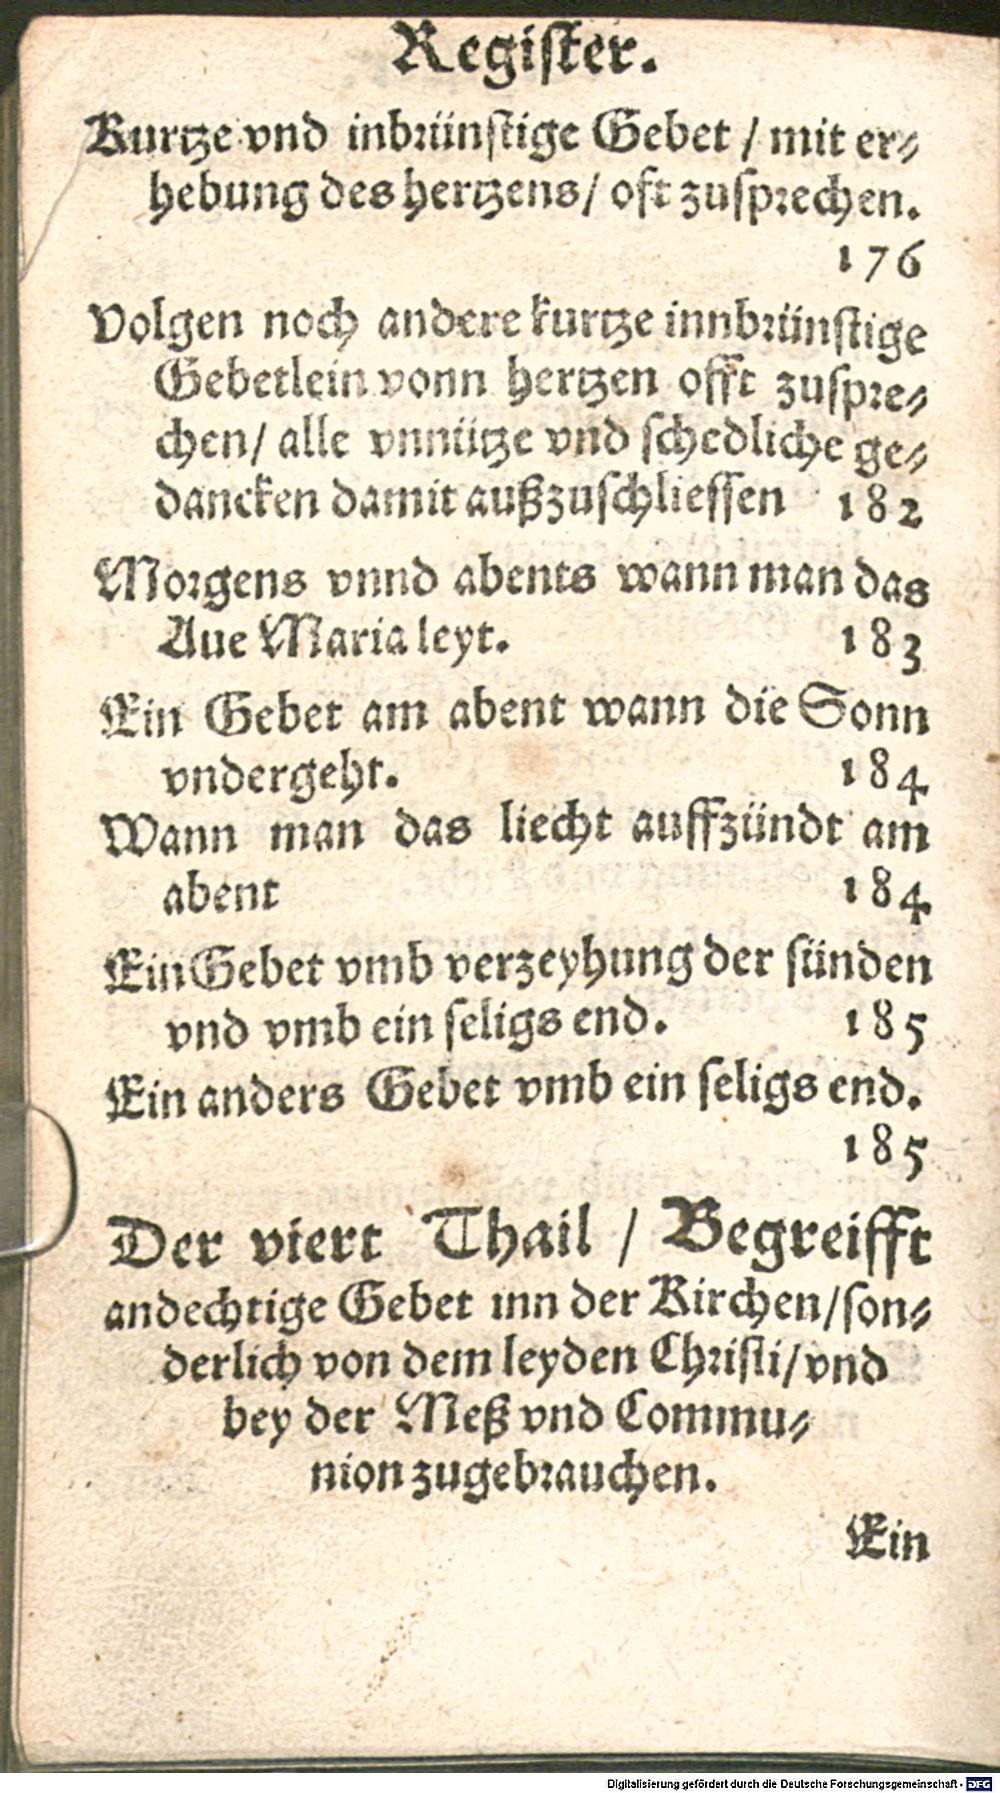 Register.
Kurtze vnd inbrünstige Gebet / mit er⸗
hebung des hertzens / oft zusprechen.
176
Volgen noch andere kurtze innbrünstige
Gebetlein vonn hertzen offt zuspre⸗
chen / alle vnnütze vnd schedliche ge⸗
dancken damit außzuschliessen 182
Morgens vnnd abents wann man das
Aue Maria leyt. 183
Ein Gebet am abent wann die Sonn
vndergeht. 184
Wann man das liecht auffzündt am
abent 184
Ein Gebet vmb verzeyhung der sünden
vnd vmb ein seligs end. 185
Ein anders Gebet vmb ein seligs end.
185
Der viert Thail / Begreifft
andechtige Gebet inn der Kirchen / son⸗
derlich von dem leyden Christi / vnd
bey der Meß vnd Commu⸗
nion zugebrauchen.
Ein
Digitalisierung gefördert durch die Deutsche Forschungsgemeinschaft - DFG